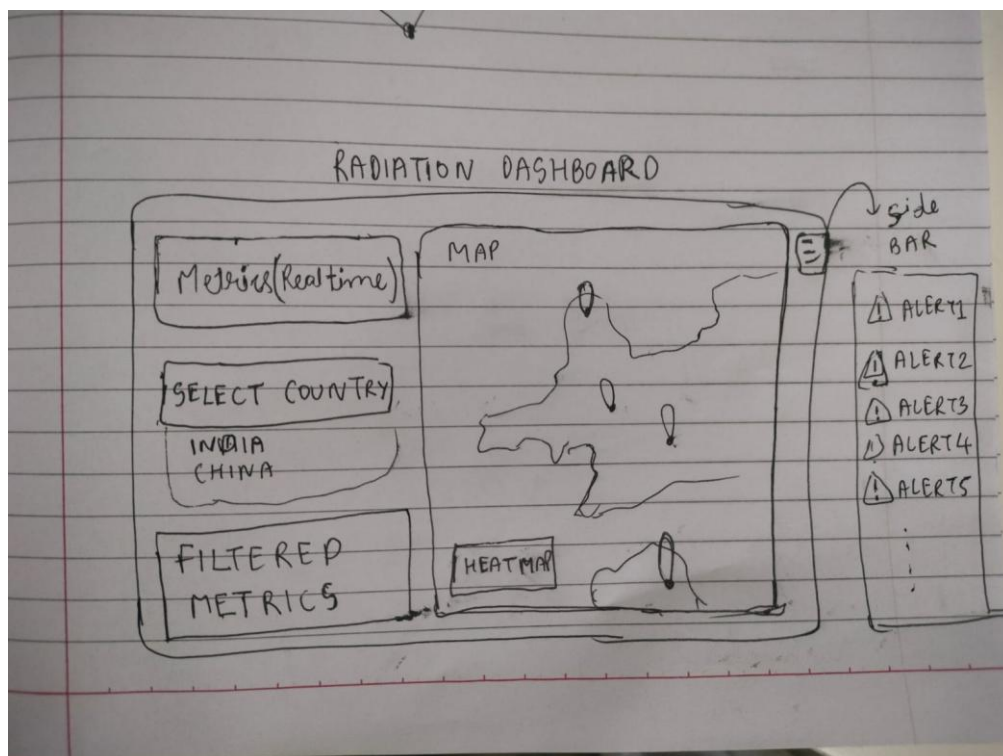 RADIATION DASHBOARD
Metrics (Realtime)
SELECT COUNTRY
INDIA
CHINA
FILTERED
METRICS
MAP
HEATMAP
Side
BAR
ALERT1
ALERT2
ALERT3
ALERT4
ALERT5